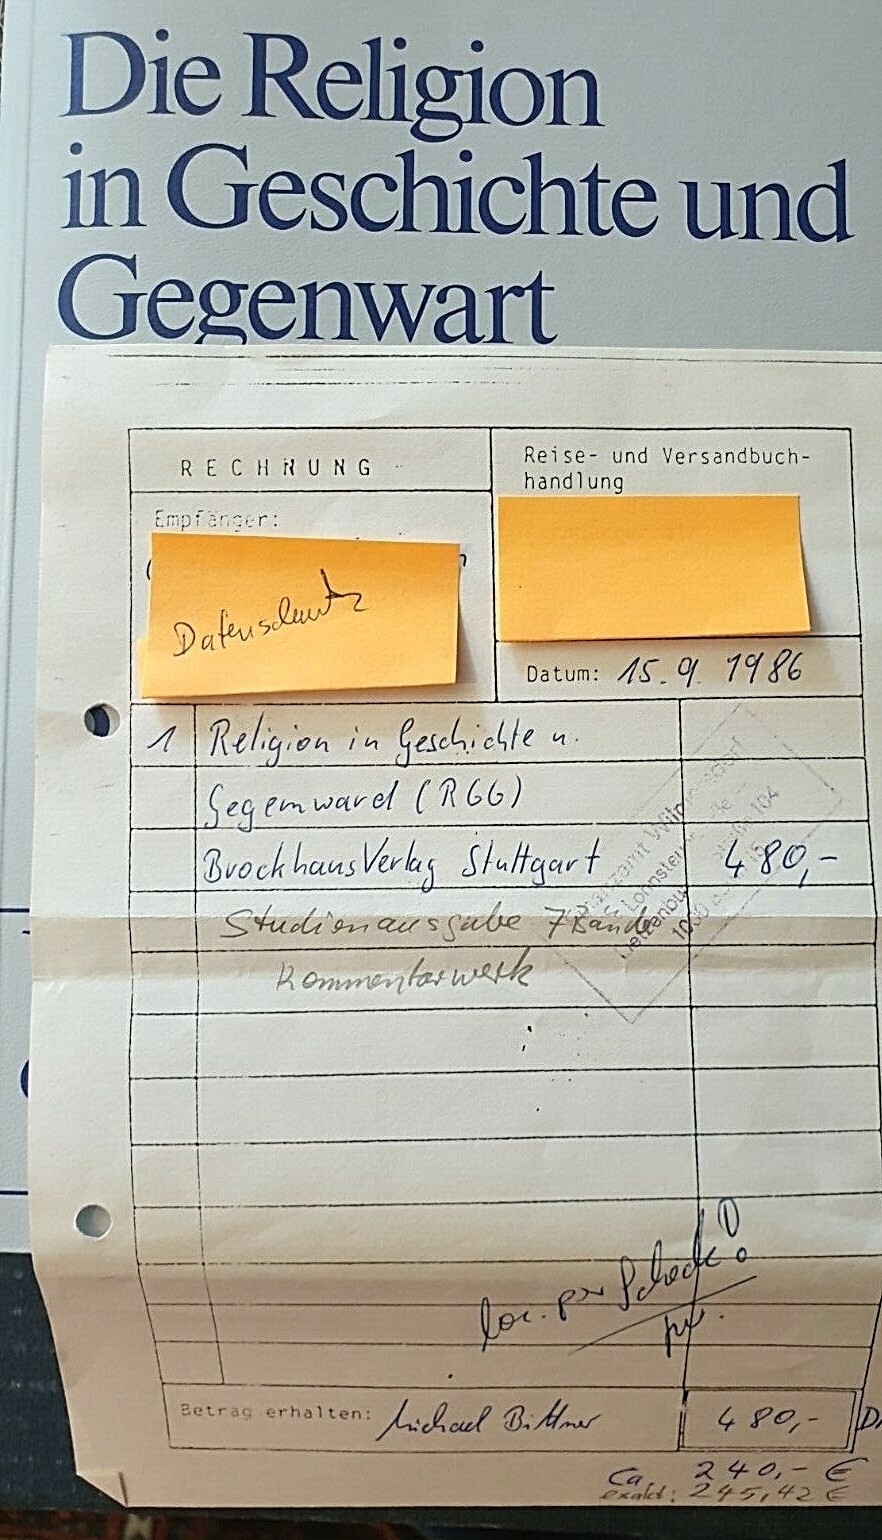 Die Religion
in Geschichte und
Gegenwart
RECHNUNG
Reise- und Versandbuch-
handlung
Empfänger:
Datenschutz
Datum: 15.9. 1986
1 Religion in Geschichte u.
Gegenward (RGG)
BrockhausVerlag Stuttgart 480,-
Studienausgabe 7 Bände
Kommentarwerk
per Scheck!
Betrag erhalten: Michael Bittner 480,-
Ca. 240,- €
exakt: 245,42 €